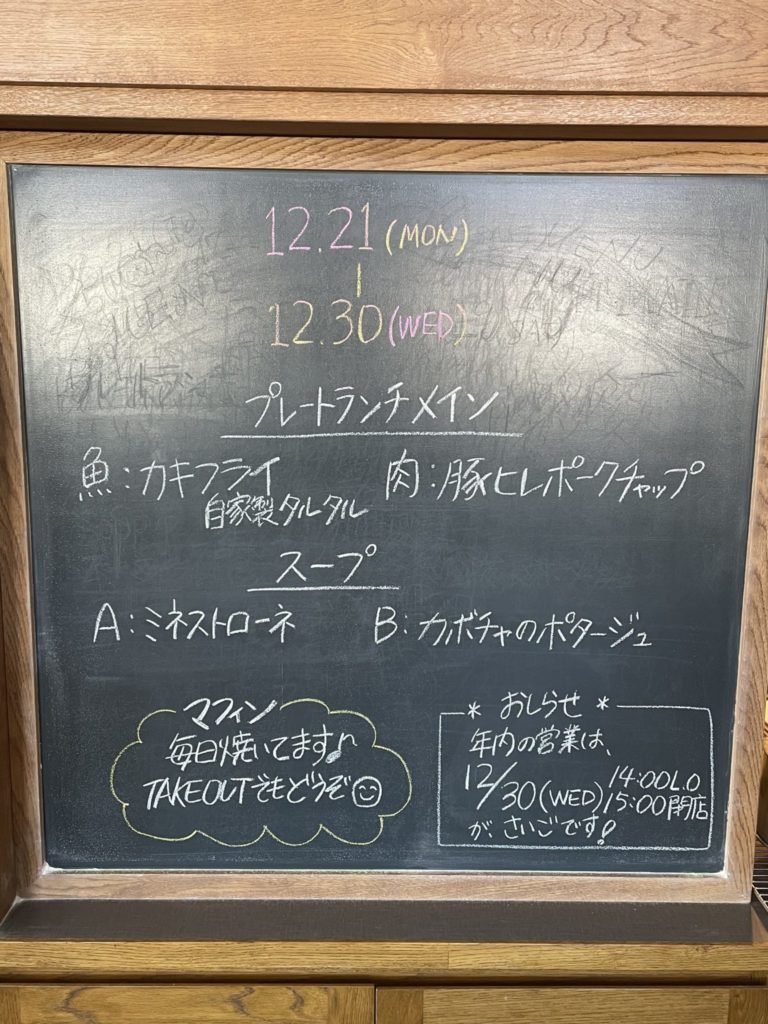 12.21(MON)
|
12.30(WED)
プレートランチメイン
魚:カキフライ
自家製タルタル
肉:豚ヒレポークチャップ
スープ
A:ミネストローネ
B:カボチャのポタージュ
マフィン
毎日焼いてます♪
TAKEOUTでもどうぞ☺
* おしらせ *
年内の営業は、
12/30(WED) 14:00L.O
15:00閉店
が、さいごです!